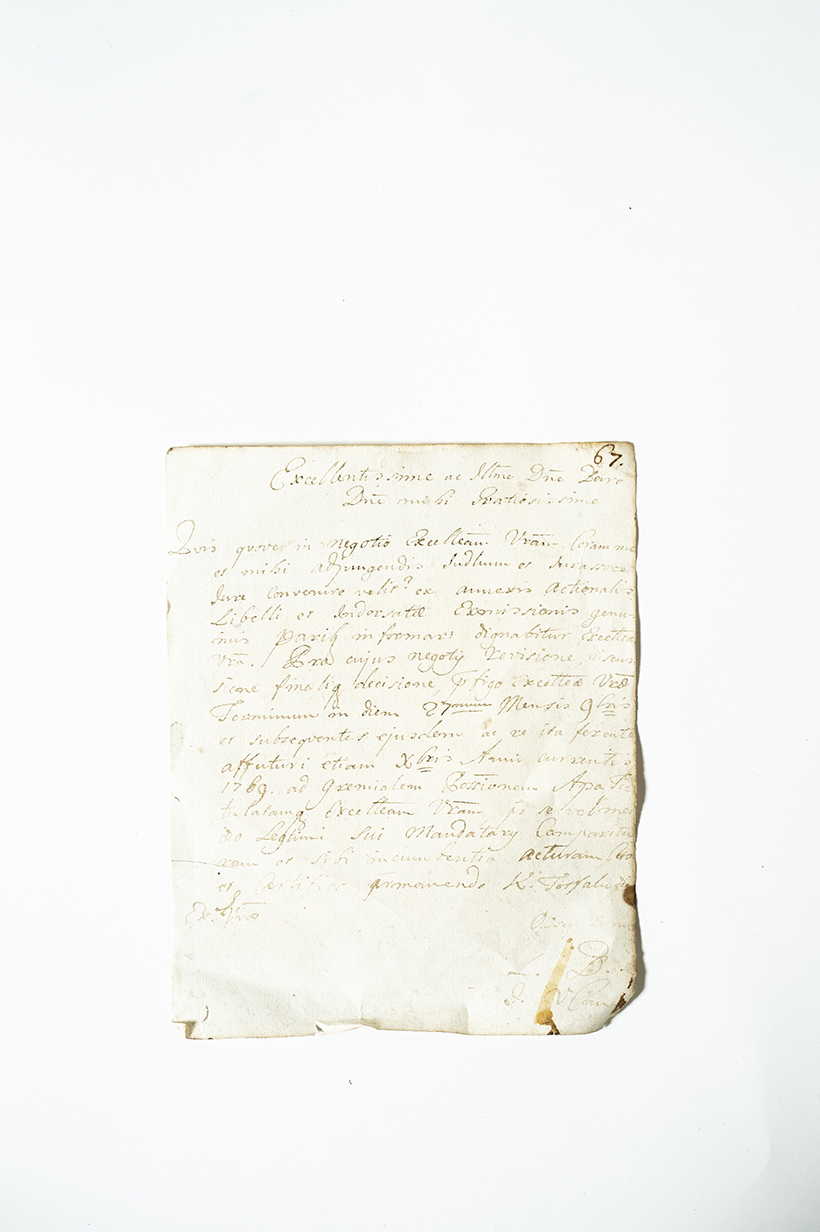 67.
Excellentissime ac Illme Dne Dne
Dne mihi Gratiosissime
in negotio Excelleam Vram Coram me
et mihi adjungendis Judlium et Jurassore
Jure convenire velit ex annexis Actionalis
Libelli et Indorsatae Exmissionis genui-
nis Parib informari dignabitur Excellea
Vra. Pra cujus negotij revisione, discus
sione finaliq decisione, pfigo Excelleae Vrae
Terminum in diem 27mum Mensis 9bris
et subsequentes ejusdem ac re ita ferente
affuturi etiam Xbris Anni currentis
1769. ad Gremialem Possionem Apa Ti-
tulatamq Excelleam Vram se vel me
do Legitimi sui Mandatarij Comparitu
ram et sibi incumbentia acturam
et prmonendo K. Torfalu die
Ex. Vrae
L. B.
J.